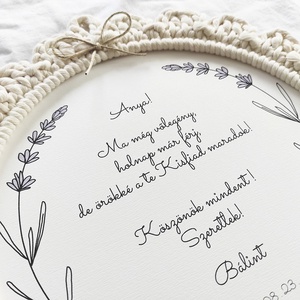 Anya!
Ma még vőlegény,
holnap már férj,
de örökké a te Kisfiad maradok!
Köszönök mindent!
Szeretlek!
Bálint
08.23